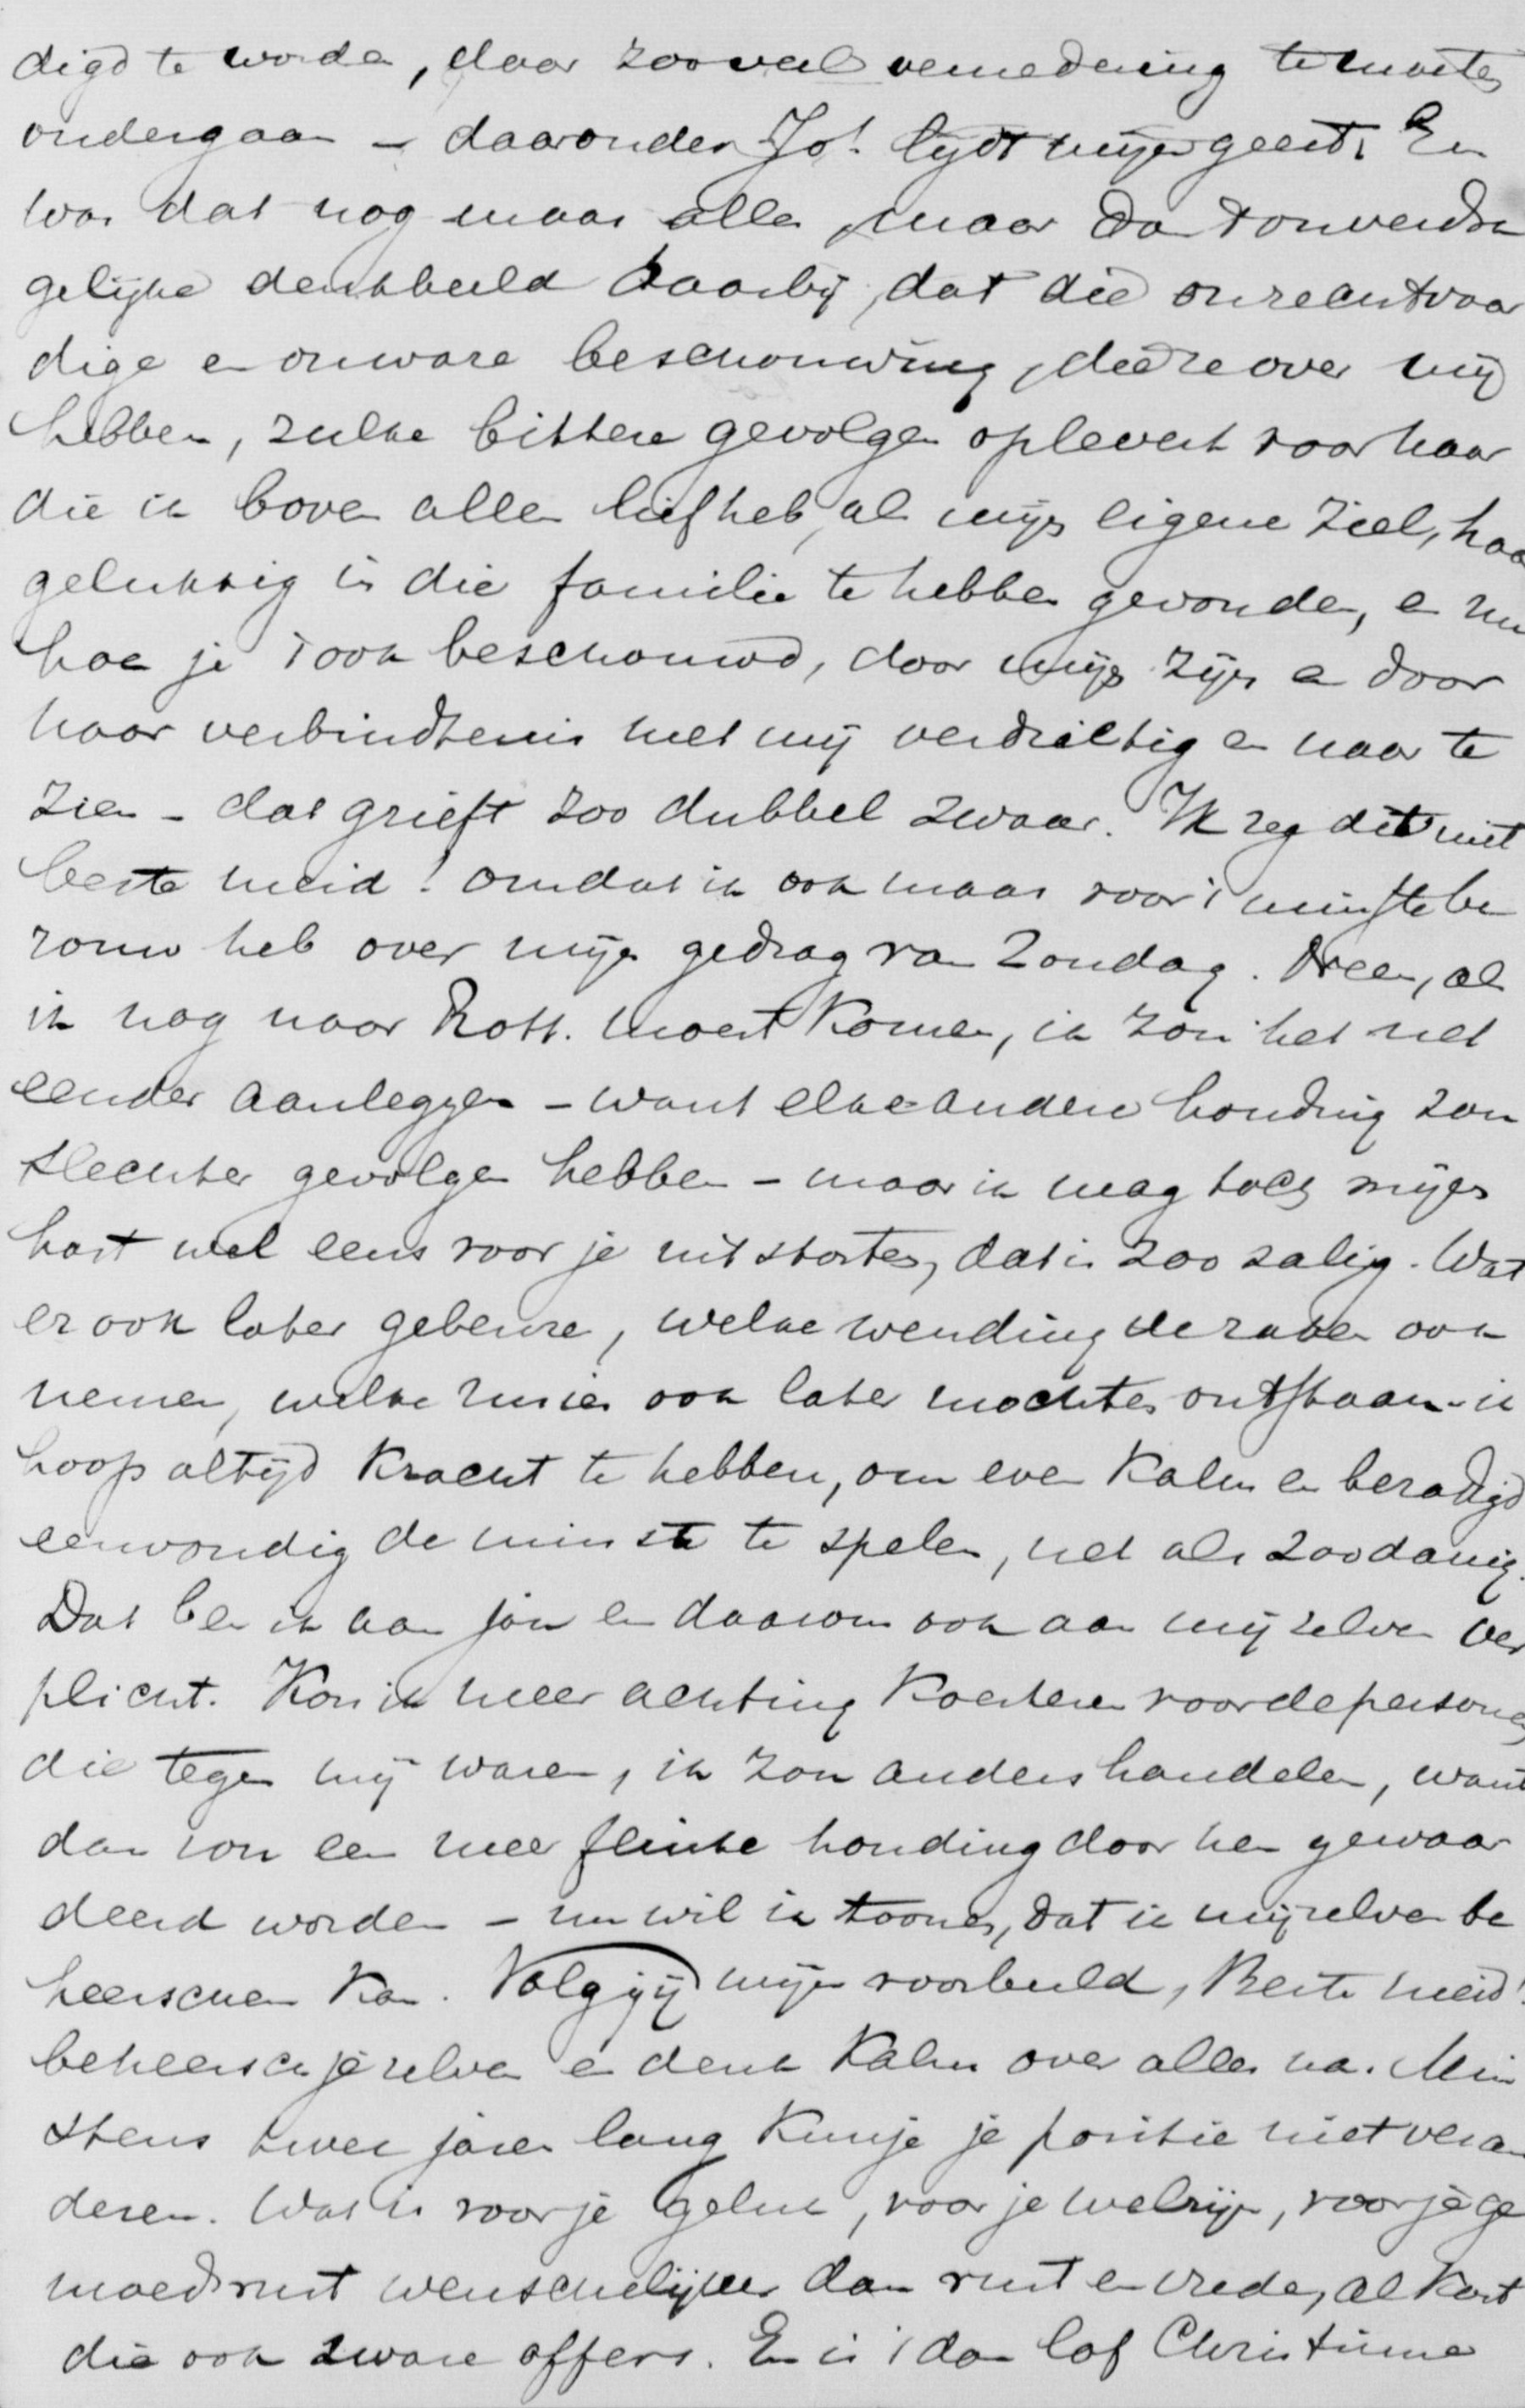 digd te worden, door zooveel vernedering te moeten
ondergaan – daaronder Jo! lijdt mijn geest. En
was dat nog maar alles, maar dan 't onverdra
gelijke denkbeeld daarbij, dat die onrechtvaar
dige en onware beschouwing, die ze over mij
hebben, zulke bittere gevolgen oplevert voor haar
die ik boven alles liefheb, als mijn eigene ziel, haar
gelukkig in die familie te hebben gevonden, en nu
hoe je 't ook beschouwd, door mijn zijn en door
haar verbindtenis met mij verdrietig en naar te
zien – dat grieft zoo dubbel zwaar. Ik zeg dit niet
beste meid! omdat ik ook maar voor 't minste be
rouw heb over mijn gedrag van Zondag. Neen, als
ik nog naar Rott. moest komen, ik zou het net
eender aanleggen – want elke andere houding zou
slechter gevolgen hebben – maar ik mag toch mijn
hart wel eens voor je uitstorten, dat is zoo zalig. Wat
er ook later gebeure, welke wending de zaken ook
nemen, welke ruzies ook later mochten ontstaan – ik
hoop altijd kracht te hebben, om even kalm en bezadigd
eenvoudig de minste te spelen, net als zoodanig.
Dat ben ik aan jou en daarom ook aan mij zelven ver
plicht. Kon ik meer achting koesteren voor de personen
die tegen mij waren, ik zou anders handelen, want
dan zou een meer flinke houding door hen gewaar
deerd worden – nu wil ik toonen, dat ik mijzelven be
heerschen kan. Volg jij mijn voorbeeld, Beste meid!
beheersch je zelven en denk kalm over alles na. Min
stens twee jaren lang kun je je positie niet veran
deren. Wat is voor je geluk, voor je welzijn, voor je ge
moedsrust wenschelijker dan rust en vrede, al kost
die ook zware offers. En is 't dan laf Christinne